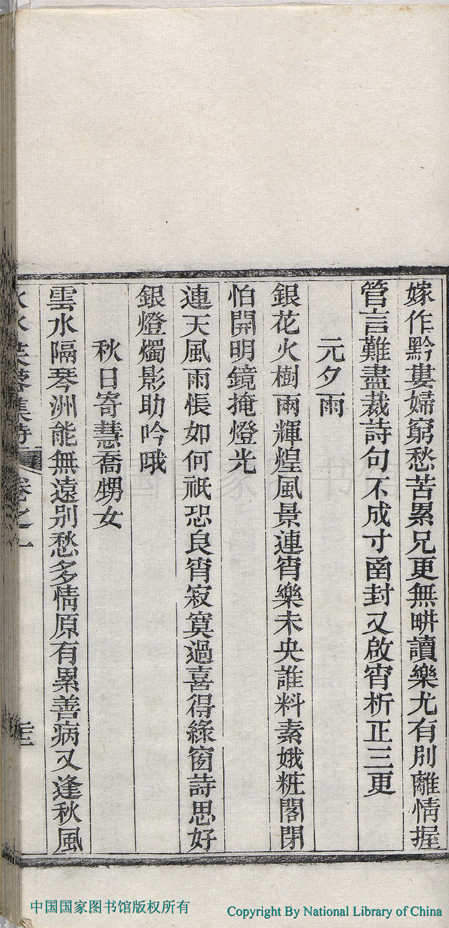 嫁作黔婁婦窮愁苦累兄更無畊讀樂尤有別離情握
管言難盡裁詩句不成寸函封又啟宵析正三更
元夕雨
銀花火樹兩輝煌風景連宵樂未央誰料素娥粧閣閉
怕開明鏡掩燈光
連天風雨悵如何祇恐良宵寂寞過喜得綠窗詩思好
銀燈燭影助吟哦
秋日寄慧喬甥女
雲水隔琴洲能無遠別愁多情原有累善病又逢秋風
集詩 卷之一
中国国家图书馆版权所有
Copyright By National Library of China